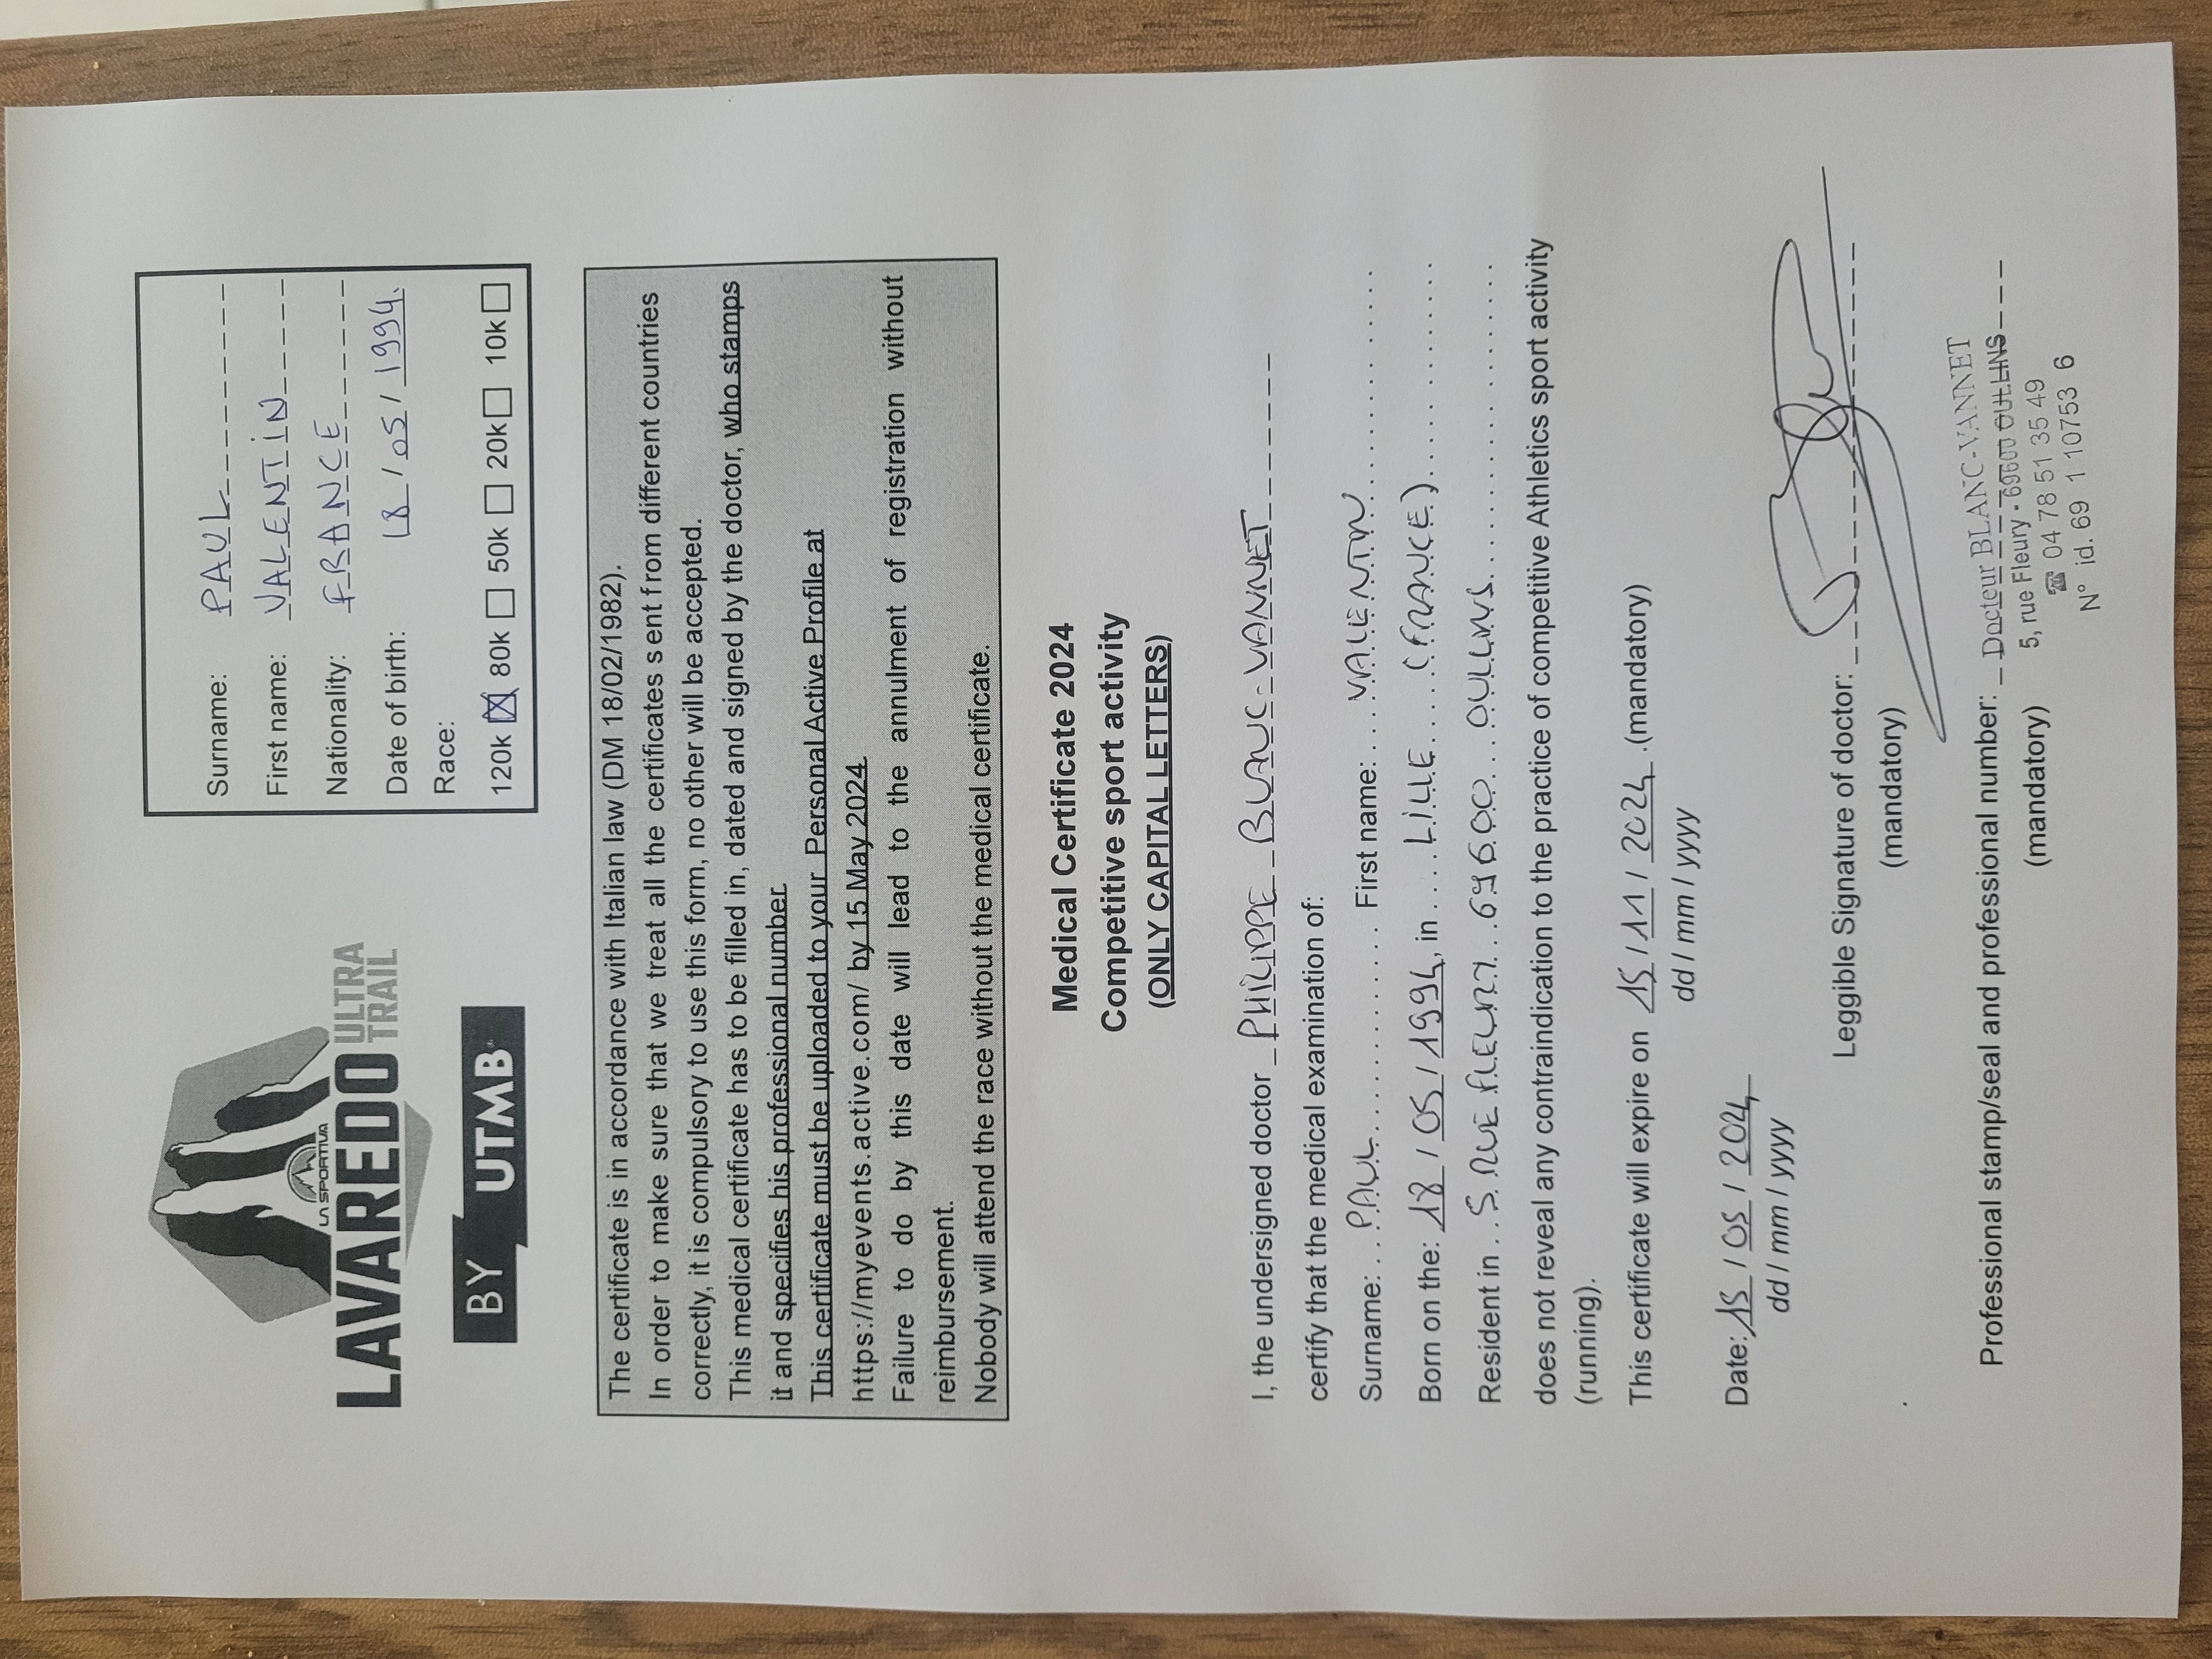 LA SPORTIVA
LAVAREDO ULTRA TRAIL
BY UTMB
Surname: PAUL
First name: VALENTIN
Nationality: FRANCE
Date of birth: 18 / 05 / 1994.
Race:
120k ☒ 80k ☐ 50k ☐ 20k ☐ 10k ☐
The certificate is in accordance with Italian law (DM 18/02/1982).
In order to make sure that we treat all the certificates sent from different countries
correctly, it is compulsory to use this form, no other will be accepted.
This medical certificate has to be filled in, dated and signed by the doctor, who stamps
it and specifies his professional number.
This certificate must be uploaded to your Personal Active Profile at
https://myevents.active.com/ by 15 May 2024.
Failure to do by this date will lead to the annulment of registration without
reimbursement.
Nobody will attend the race without the medical certificate.
Medical Certificate 2024
Competitive sport activity
(ONLY CAPITAL LETTERS)
I, the undersigned doctor PHILIPPE BLANC-VANNET
certify that the medical examination of:
Surname: PAUL First name: VALENTIN
Born on the: 18 / 05 / 1994, in LILLE (FRANCE)
Resident in 5 RUE FLEURY 69600 OULLINS
does not reveal any contraindication to the practice of competitive Athletics sport activity
(running).
This certificate will expire on 15 / 11 / 2024 .(mandatory)
dd / mm / yyyy
Date: 15 / 05 / 2024
dd / mm / yyyy
Leggible Signature of doctor:
(mandatory)
Professional stamp/seal and professional number: Docteur BLANC-VANNET
(mandatory)
5, rue Fleury - 69600 OULLINS
☎ 04 78 51 35 49
N° id. 69 1 10753 6